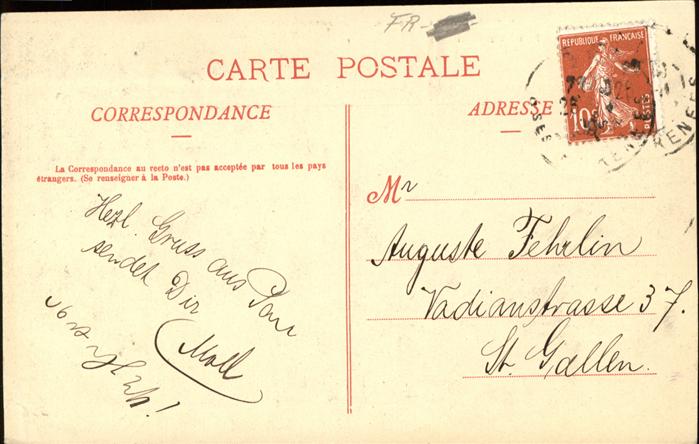 FR-
CARTE POSTALE
CORRESPONDANCE
La Correspondance au recto n'est pas acceptée par tous les pays
étrangers. (Se renseigner à la Poste.)
Herzl. Gruss aus
sendet Dir
Moll
ADRESSE
REPUBLIQUE FRANÇAISE
10c
POSTES
Mr
Auguste Fehrlin
Vadianstrasse 37.
St. Gallen.